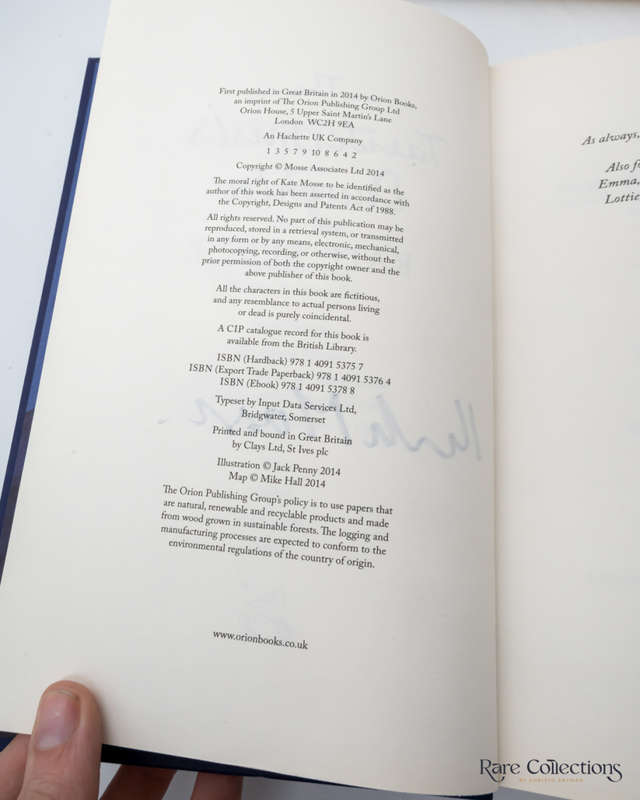 First published in Great Britain in 2014 by Orion Books,
an imprint of The Orion Publishing Group Ltd
Orion House, 5 Upper Saint Martin's Lane
London WC2H 9EA
An Hachette UK Company
1 3 5 7 9 10 8 6 4 2
Copyright © Mosse Associates Ltd 2014
The moral right of Kate Mosse to be identified as the
author of this work has been asserted in accordance with
the Copyright, Designs and Patents Act of 1988.
All rights reserved. No part of this publication may be
reproduced, stored in a retrieval system, or transmitted
in any form or by any means, electronic, mechanical,
photocopying, recording, or otherwise, without the
prior permission of both the copyright owner and the
above publisher of this book.
All the characters in this book are fictitious,
and any resemblance to actual persons living
or dead is purely coincidental.
A CIP catalogue record for this book is
available from the British Library.
ISBN (Hardback) 978 1 4091 5375 7
ISBN (Export Trade Paperback) 978 1 4091 5376 4
ISBN (Ebook) 978 1 4091 5378 8
Typeset by Input Data Services Ltd,
Bridgwater, Somerset
Printed and bound in Great Britain
by Clays Ltd, St Ives plc
Illustration © Jack Penny 2014
Map © Mike Hall 2014
The Orion Publishing Group's policy is to use papers that
are natural, renewable and recyclable products and made
from wood grown in sustainable forests. The logging and
manufacturing processes are expected to conform to the
environmental regulations of the country of origin.
www.orionbooks.co.uk
As always,
Also
Emma,
Lottie
Rare Collections